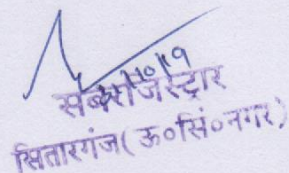 सबरजिस्ट्रार
सितारगंज(ऊ०सिं०नगर)